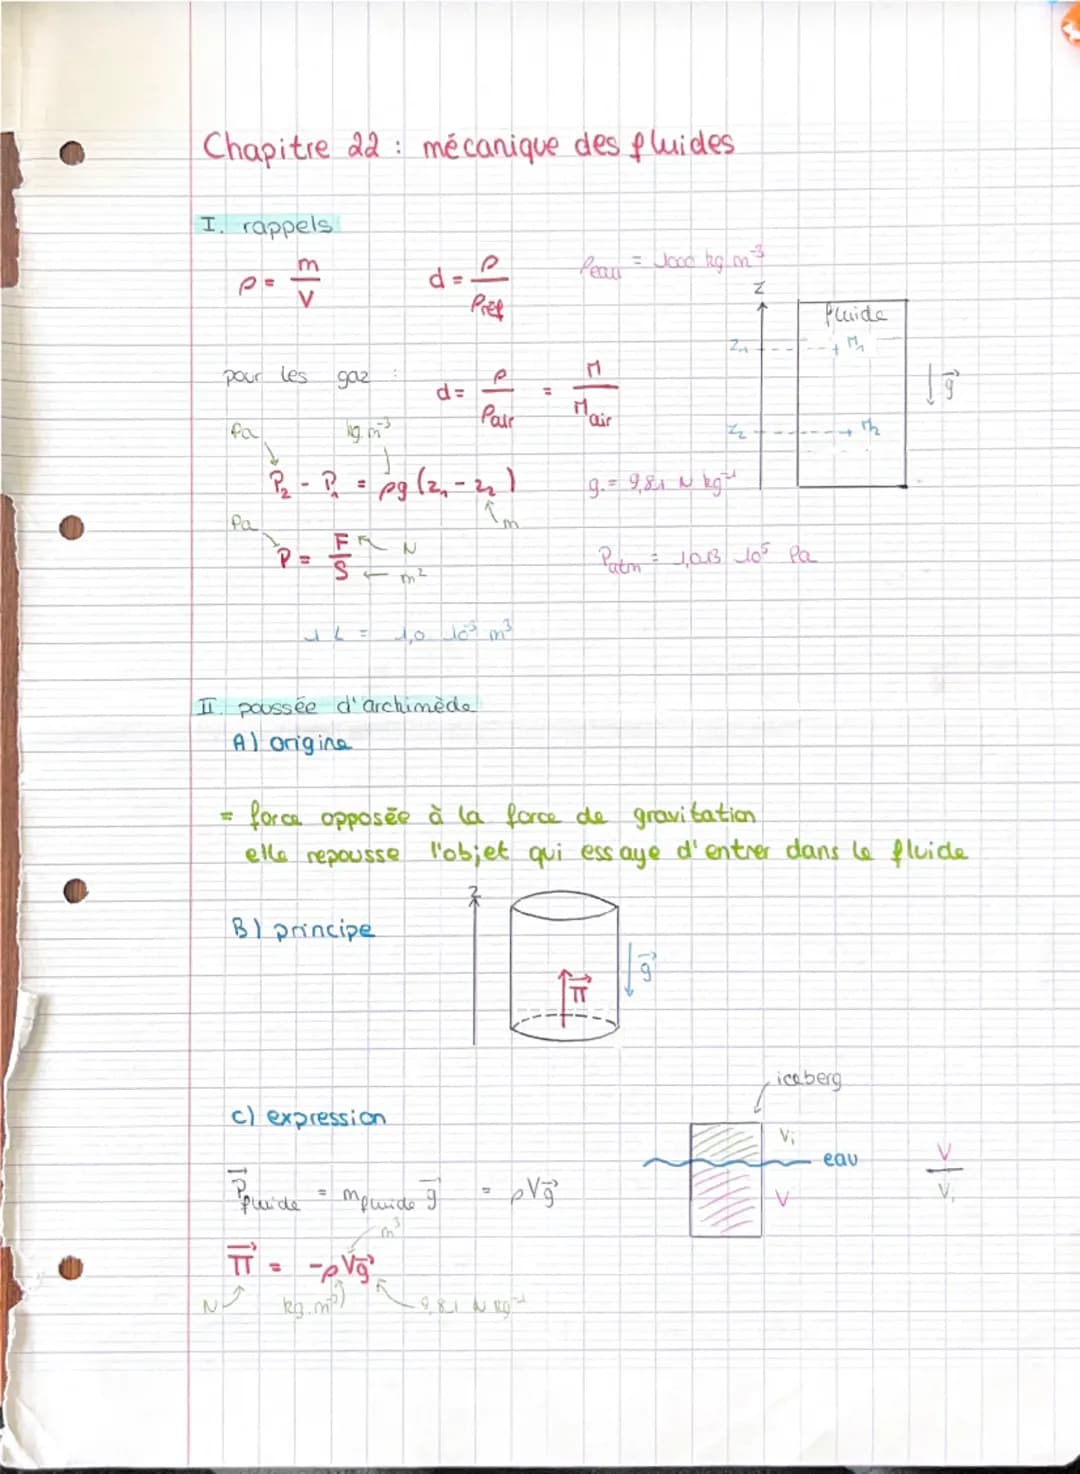 Chapitre 22 : mécanique des fluides
I. rappels
ρ = m/V
d = ρ/ρréf
ρeau = 1000 kg.m⁻³
z
fluide
z₁
M₁
g⃗
pour les gaz :
d = ρ/ρair = M/Mair
z₂
M₂
Pa
kg.m⁻³
P₂ - P₁ = ρg (z₁ - z₂)
m
g = 9,81 N kg⁻¹
Pa
P = F/S
N
m²
Patm = 1,013 10⁵ Pa
1 L = 1,0 10⁻³ m³
II poussée d'archimède
A) origine
= force opposée à la force de gravitation
elle repousse l'objet qui essaye d'entrer dans le fluide
B) principe
z
Π⃗
g⃗
iceberg
C) expression
Vi
eau
V
V/Vi
P⃗fluide = mfluide g⃗ = ρVg⃗
m³
Π⃗ = -ρVg⃗
N
kg.m⁻³
9,81 N kg⁻¹